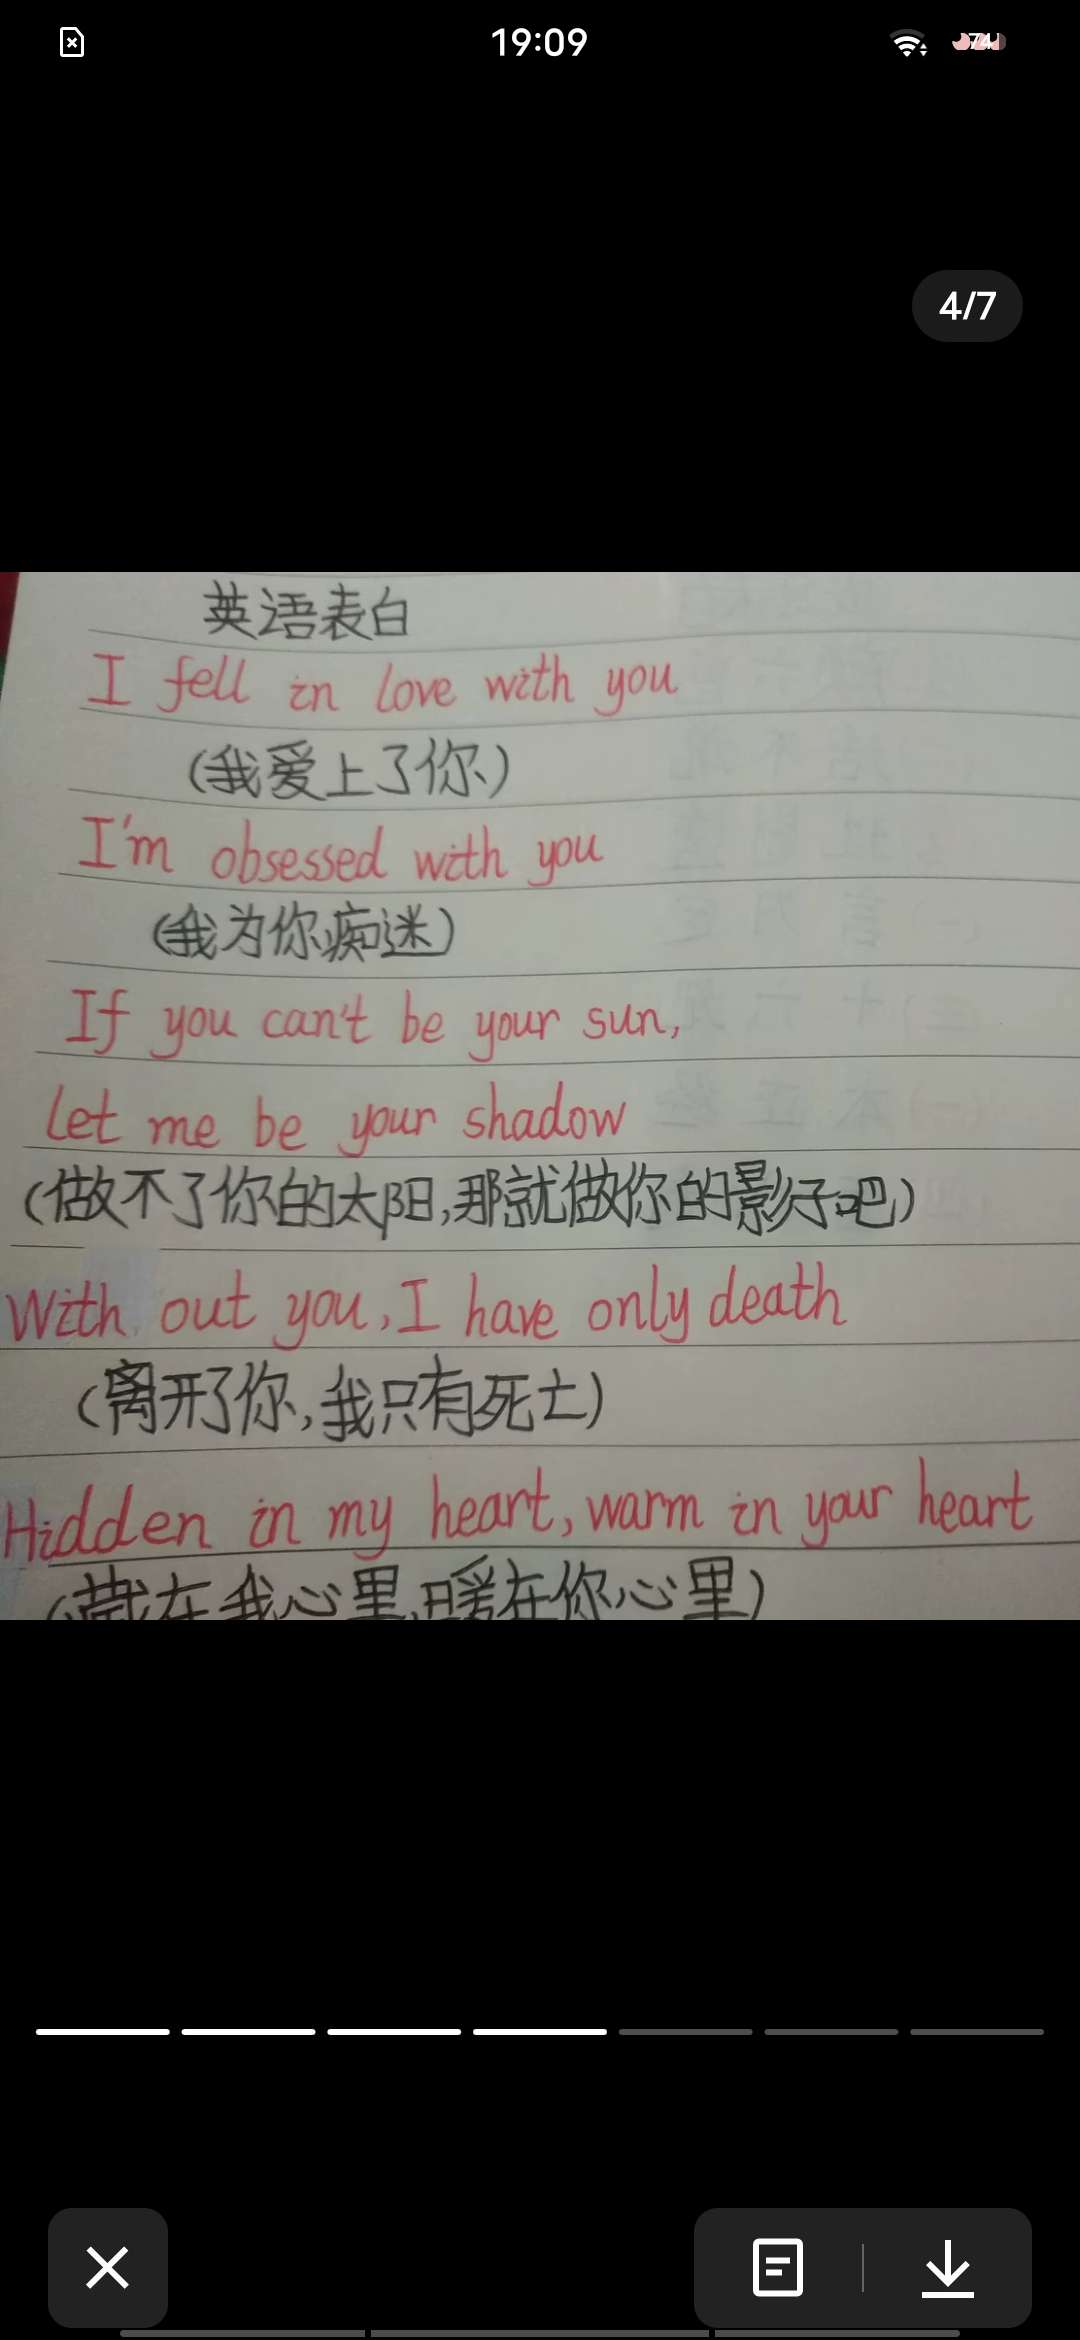 19:09
74
4/7
英语表白
I fell in love with you
(我爱上了你)
I'm obsessed with you
(我为你痴迷)
If you can't be your sun,
let me be your shadow
(做不了你的太阳,那就做你的影子吧)
With out you, I have only death
(离开了你,我只有死亡)
Hidden in my heart, warm in your heart
(藏在我心里,暖在你心里)